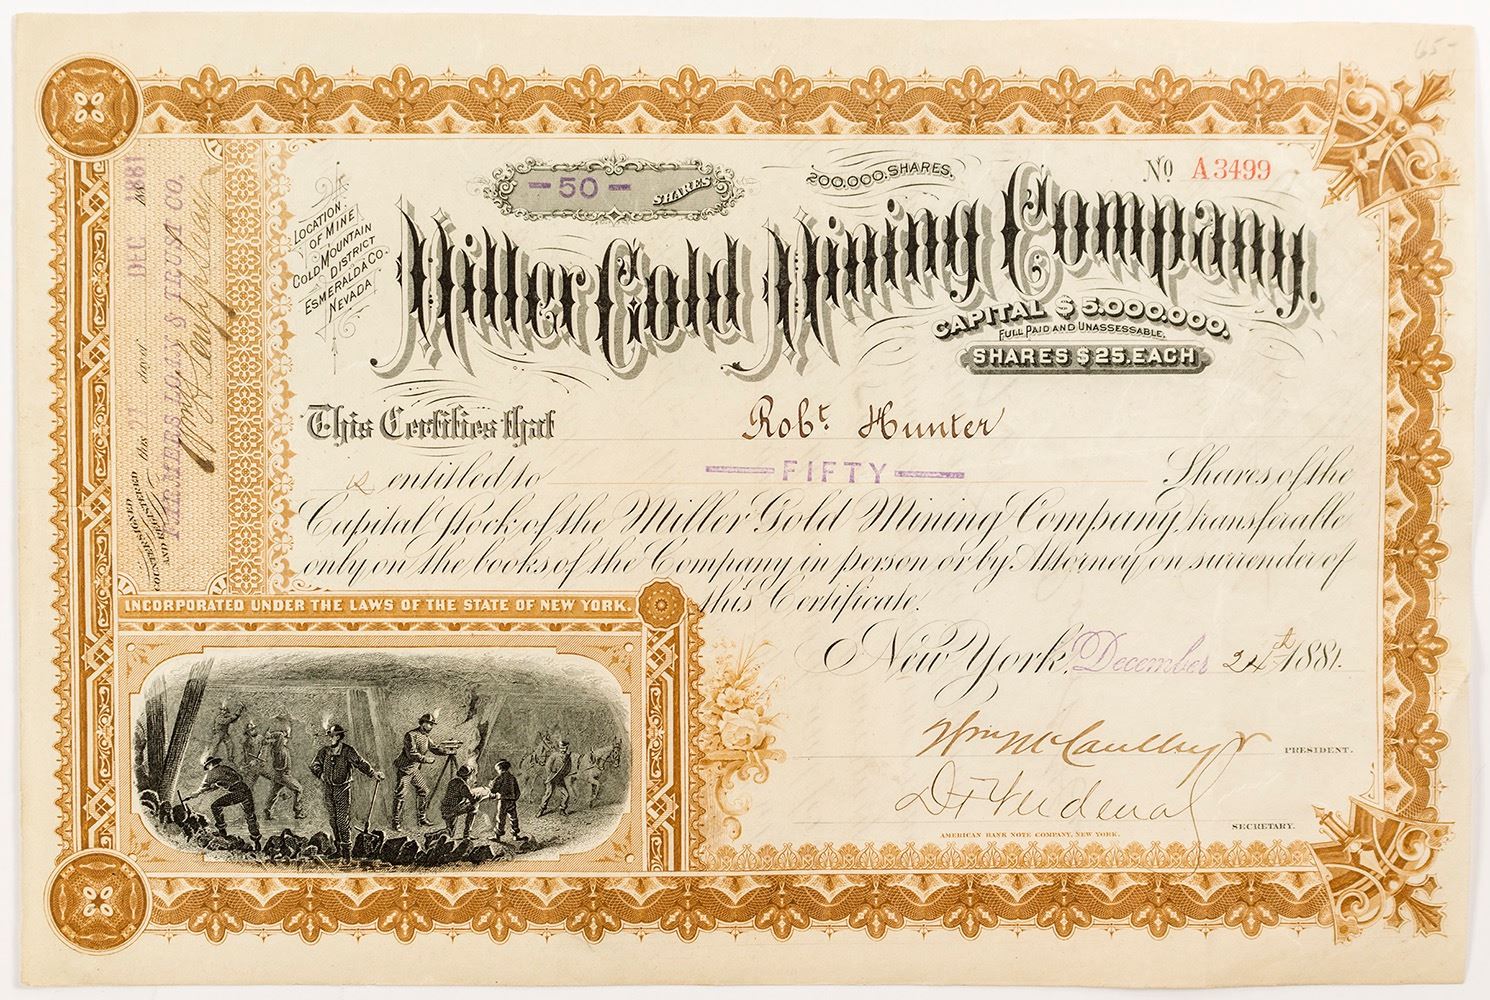 65-
- 50 -
SHARES
200,000. SHARES.
No A3499
LOCATION
OF MINE
GOLD MOUNTAIN
DISTRICT
ESMERALDA CO.
NEVADA
Miller Gold Mining Company.
CAPITAL $5.000.000.
FULL PAID AND UNASSESSABLE.
SHARES $25. EACH
This Certifies that Robt Hunter
is entitled to FIFTY Shares of the
Capital Stock of the Miller Gold Mining Company, transferable
only on the books of the Company in person or by Attorney on surrender of
this Certificate.
New York, December 24th 1881.
PRESIDENT.
SECRETARY.
AMERICAN BANK NOTE COMPANY, NEW YORK.
INCORPORATED UNDER THE LAWS OF THE STATE OF NEW YORK.
COUNTERSIGNED
AND REGISTERED this day of 188
DEC 1881
FARMERS LOAN & TRUST CO.